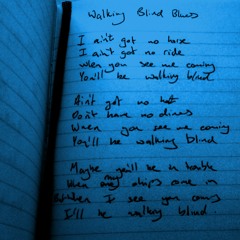 Walking Blind Blues
I ain't got no horse
I ain't got no ride
When you see me coming
You'll be walking blind
Ain't got no hat
Don't have no dimes
When you see me coming
You'll be walking blind
Maybe you'll be in trouble
When my ships come in
But when I see you coming
I'll be walking blind.